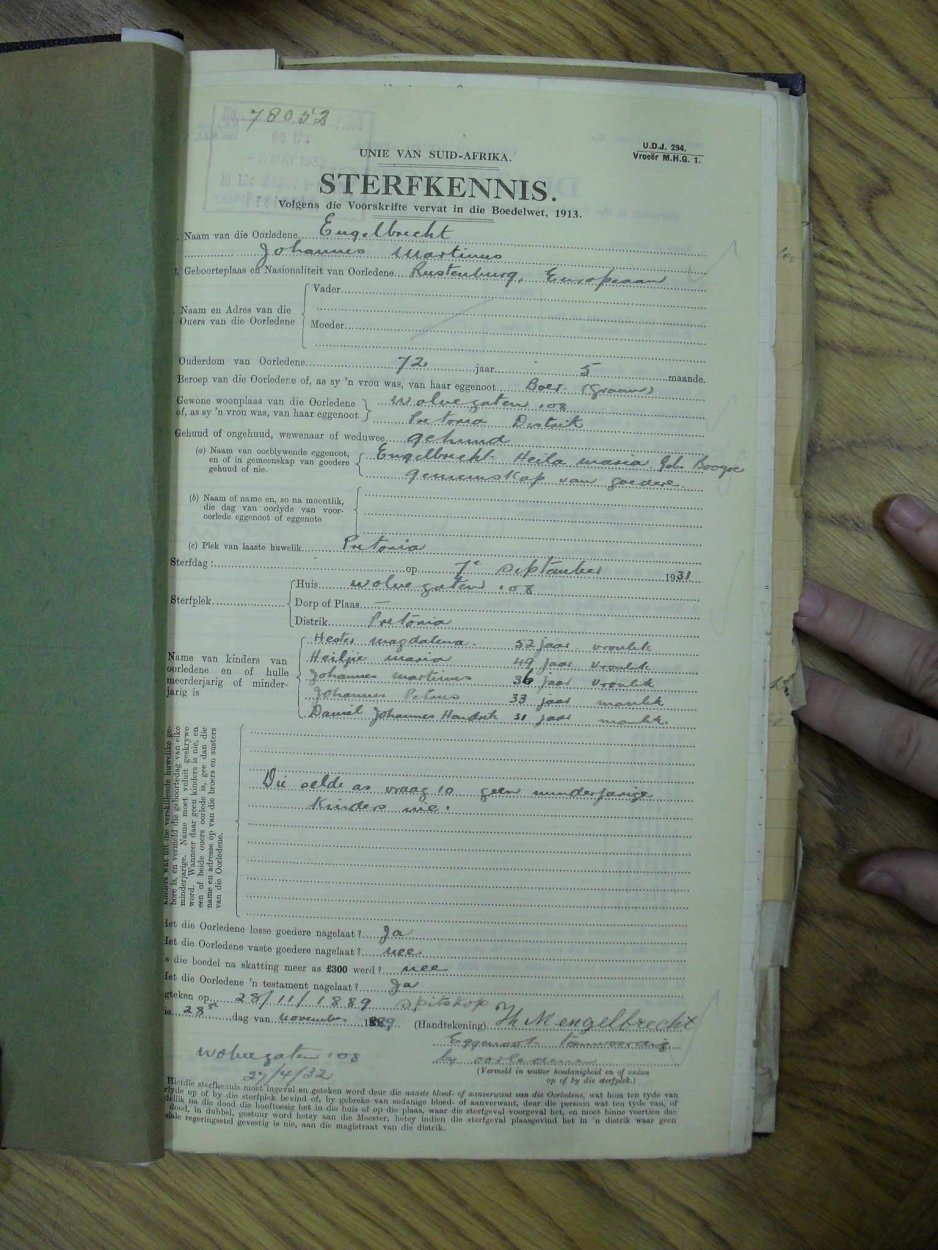 78053
MAY 1932
U.D.J. 294.
Vroeër M.H.G. 1.
UNIE VAN SUID-AFRIKA.
STERFKENNIS.
Volgens die Voorskrifte vervat in die Boedelwet, 1913.
Naam van die Oorledene Engelbrecht
Johannes Martinus
Geboorteplaas en Nasionaliteit van Oorledene Rustenburg, Europeaan
Naam en Adres van die Ouers van die Oorledene
Vader
Moeder
Ouderdom van Oorledene 72 jaar 5 maande.
Beroep van die Oorledene of, as sy 'n vrou was, van haar eggenoot Boer (Graan)
Gewone woonplaas van die Oorledene wolvegaten 108
of, as sy 'n vrou was, van haar eggenoot Pretoria Distrik
Gehuud of ongehuud, wewenaar of weduwee gehuud
(a) Naam van oorblywende eggenoot, Engelbrecht Heila maria Geb.
en of in gemeenskap van goedere gemeenskap van goedere
gehuud of nie.
(b) Naam of name en, so na moontlik,
die dag van oorlyde van voor-
oorlede eggenoot of eggenote
(c) Plek van laaste huwelik Pretoria
Sterfdag: op 7e september 1931
Sterfplek
Huis wolvegaten 108
Dorp of Plaas —
Distrik Pretoria
Name van kinders van
oorledene en of hulle
meerderjarig of minder-
jarig is
Hester magdalena 52 jaar vroulik
Heiltjie maria 49 jaar vroulik
Johannes martinus 36 jaar vroulik
Johannes Petrus 33 jaar manlik
Daniel Johannes Hendrik 31 jaar manlik
bore is, en vermeld die geboortedag van elke
minderjarige. Name moet voluit geskrywe
word. Wanneer daar geen kinders is nie, en
een of beide ouers oorlede is, gee dan die
name en adresse op van die broers en susters
van die Oorledene.
Die selde as vraag 10 geen minderjarige
Kinders nie.
Het die Oorledene losse goedere nagelaat? Ja
Het die Oorledene vaste goedere nagelaat? nee
Is die boedel na skatting meer as £300 werd? nee
Het die Oorledene 'n testament nagelaat? Ja
geteken op 28/11/1889 Spitskop
28 dag van november 1889 (Handtekening) H Mengelbrecht
Eggenoot
by oorledene
(Vermeld in watter hoedanigheid en of aldan
op of by die sterfplek.)
wolvegaten 108
27/4/32
Hierdie sterfkennis moet ingevul en geteken word deur die naaste bloed- of aanverwant van die Oorledene, wat hom ten tyde van
op of by die sterfplek bevind of, by gebreke van sodanige bloed- of aanverwant, deur die persoon wat ten tyde van, of
na die dood die hooftoesig het in die huis of op die plaas, waar die sterfgeval voorgeval het, en moet binne veertien dae
dood, in dubbel, gestuur word hetsy aan die Meester, hetsy indien die sterfgeval plaasgevind het in 'n distrik waar geen
regeringsetel gevestig is nie, aan die magistraat van die distrik.